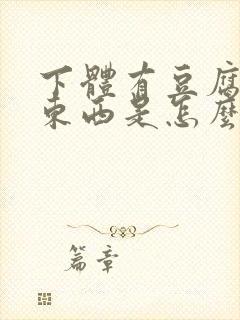 下體有豆腐
東西是怎麼
篇章